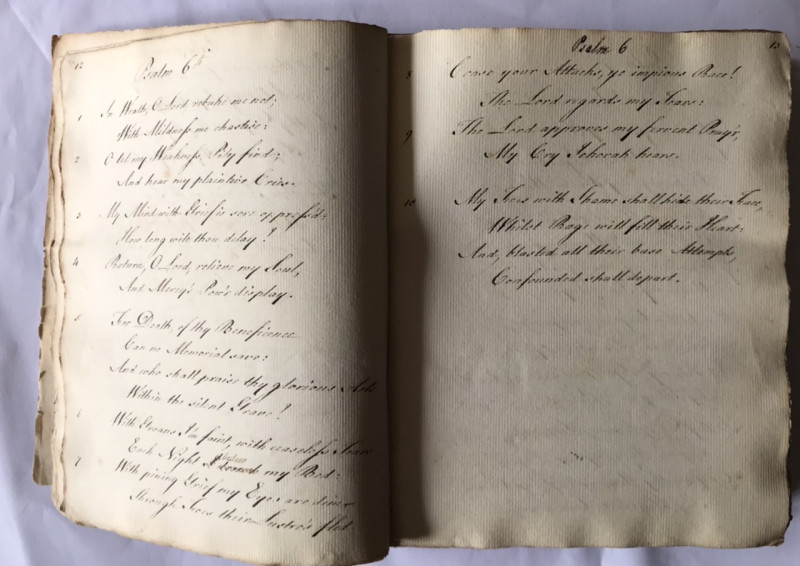 12
Psalm 6th
1 In Wrath, O Lord rebuke me not;
With Mildness me chastise:
2 O let my Weakness, Pity find;
And hear my plaintive Cries.
3 My Mind with Grief is sore oppressed:
How long wilt thou delay!
4 Return, O Lord, relieve my Soul,
And Mercy's Pow'r display.
5 For Death, of thy Beneficence
Can no Memorial save:
And who shall praise thy glorious Acts
Within the silent Grave!
6 With Groans I'm faint, with ceaseless Tears
Each Night my Bed:
7 With pining Grief my Eyes are dim
Through Foes their Lustre's fled
Psalm 6
13
8 Cease your Attacks, ye impious Race!
The Lord regards my Tears:
9 The Lord approves my fervent Pray'r,
My Cry Jehovah hears.
10 My Foes with Shame shall hide their Face,
Whilst Rage will fill their Heart:
And, blasted all their base Attempts,
Confounded shall depart.